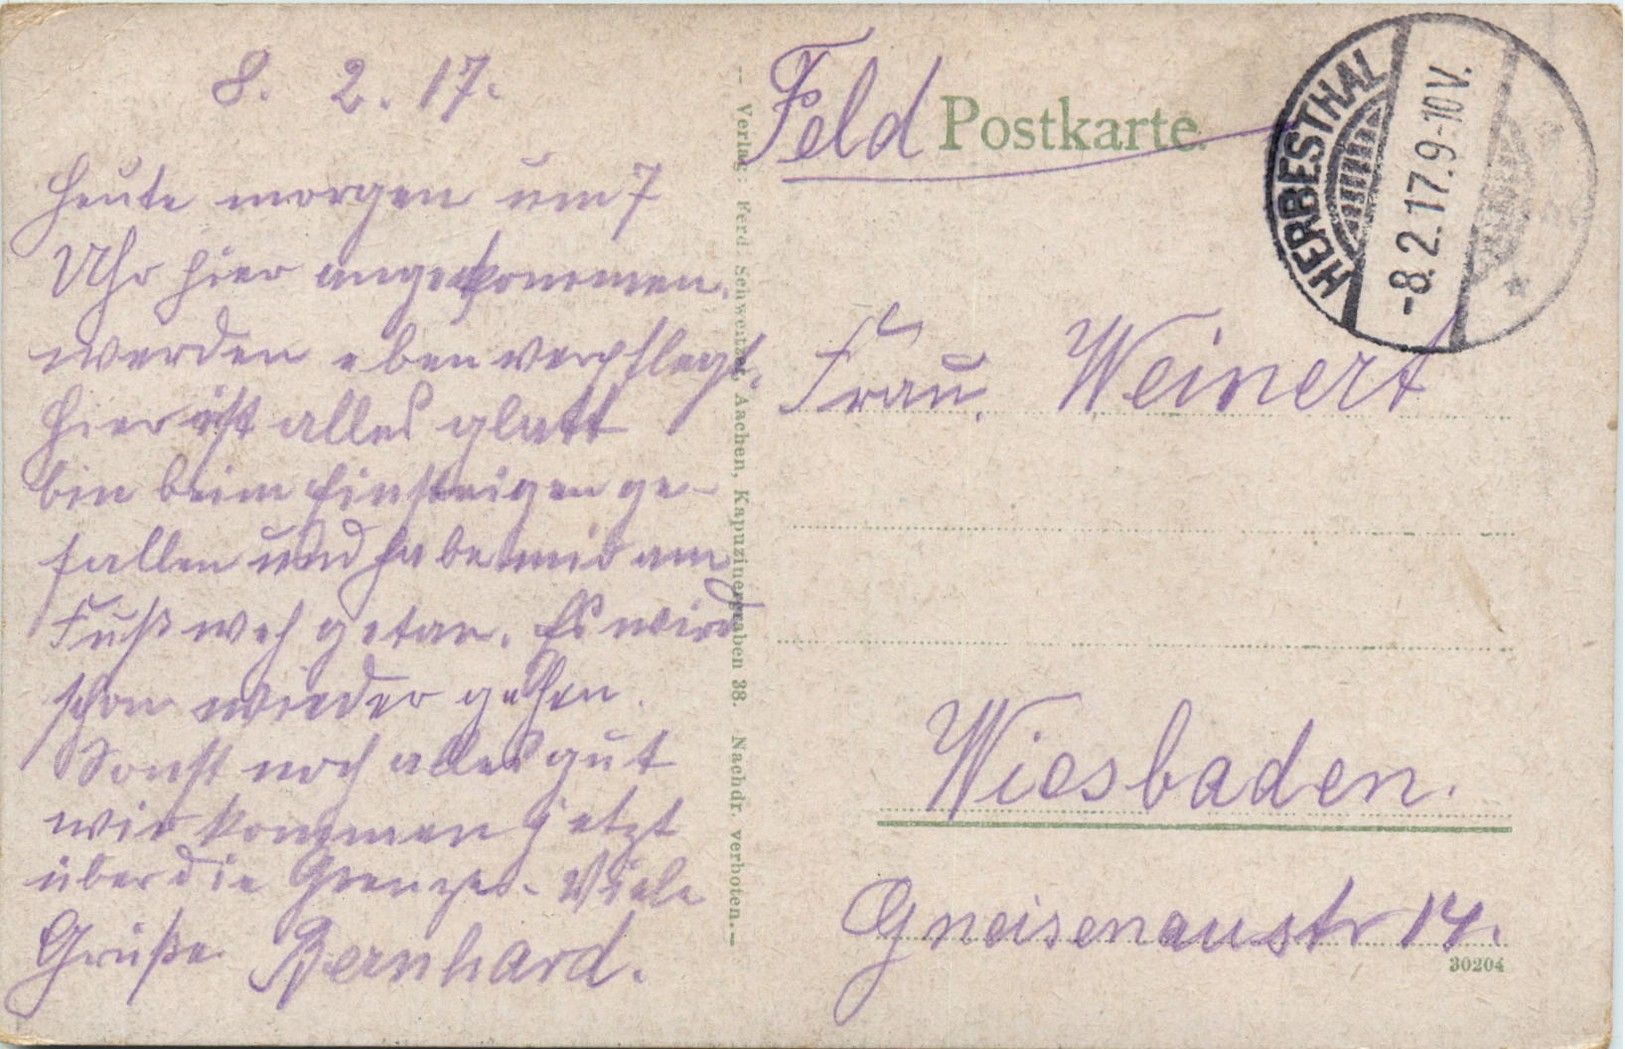 8. 2. 17.
Heute morgen um 7
Uhr hier angekommen.
werden eben verpflegt.
Hier ist alles glatt
bin beim Einsteigen ge-
fallen und habe mir am
Fuß weh getan. Es wird
schon wieder gehen.
Sonst noch alles gut
wir kommen jetzt
über die Grenze. Viele
Grüße. Bernhard.
-- Verlag: Ferd. Schweitzer, Aachen, Kapuzinergraben 38. Nachdr. verboten.--
Feld Postkarte.
HERBESTHAL
-8.2.17.9-10V.
Frau. Weinert
Wiesbaden.
Gneisenaustr 14.
30204